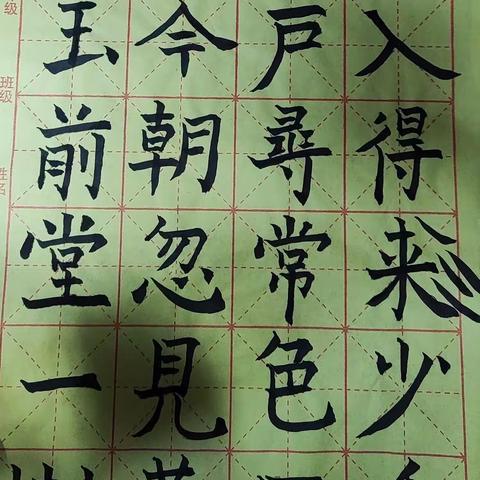 级
班级
姓名
玉前堂一
今朝忽見
户尋常色
入得来少